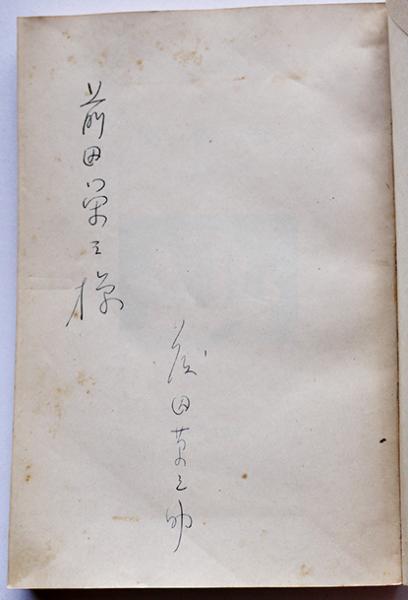 前田栄三様
田萬之助